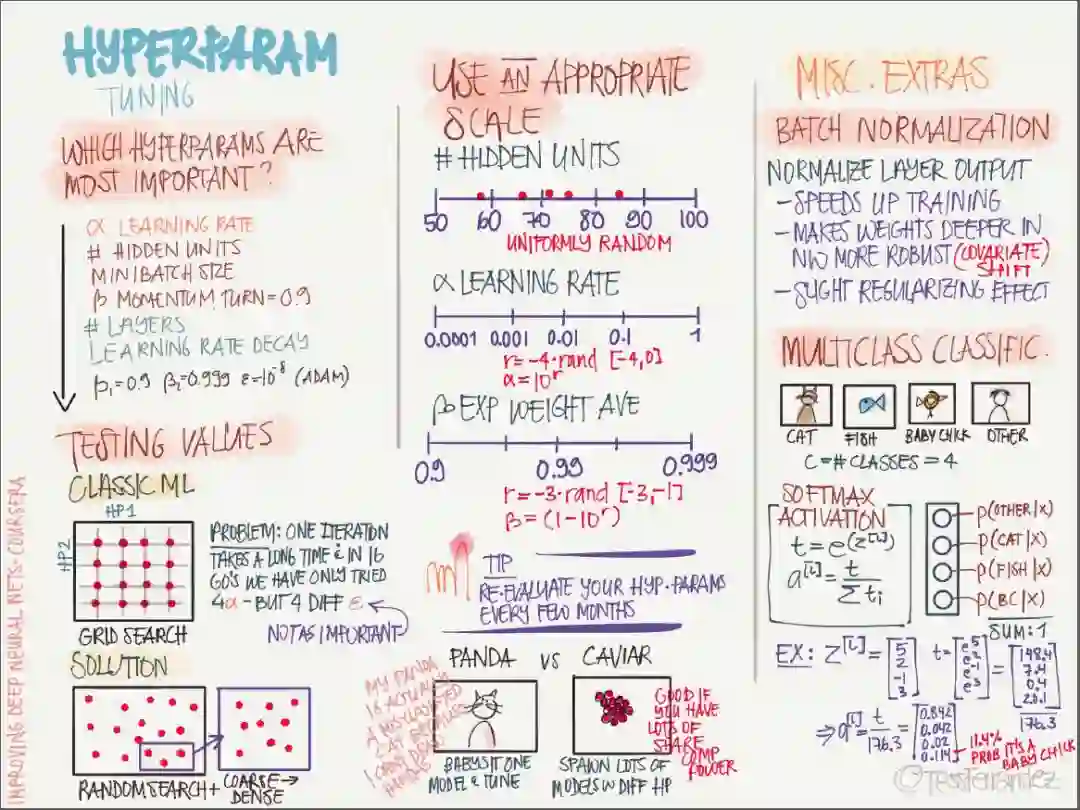 HYPERPARAM
TUNING
WHICH HYPERPARAMS ARE
MOST IMPORTANT?
α LEARNING RATE
# HIDDEN UNITS
MINIBATCH SIZE
β MOMENTUM TURN = 0.9
# LAYERS
LEARNING RATE DECAY
β₁=0.9 β₂=0.999 ε=10⁻⁸ (ADAM)
TESTING VALUES
CLASSIC ML
HP1
HP2
GRID SEARCH
PROBLEM: ONE ITERATION
TAKES A LONG TIME & IN 16
GO'S WE HAVE ONLY TRIED
4α - BUT 4 DIFF ε
NOT AS IMPORTANT
SOLUTION
RANDOM SEARCH +
COARSE →
DENSE
IMPROVING DEEP NEURAL NETS · COURSERA
USE AN APPROPRIATE
SCALE
# HIDDEN UNITS
50 60 70 80 90 100
UNIFORMLY RANDOM
α LEARNING RATE
0.0001 0.001 0.01 0.1 1
r = -4·rand [-4,0]
α = 10ʳ
β EXP WEIGHT AVE
0.9 0.99 0.999
r = -3·rand [-3,-1]
β = (1-10ʳ)
TIP
RE-EVALUATE YOUR HYP. PARAMS
EVERY FEW MONTHS
PANDA VS CAVIAR
MY PANDA
IS ACTUALLY
A
BABYSIT ONE
MODEL & TUNE
GOOD IF
YOU HAVE
LOTS OF
SHARE
COMP
POWER
SPAWN LOTS OF
MODELS W DIFF HP
MISC. EXTRAS
BATCH NORMALIZATION
NORMALIZE LAYER OUTPUT
- SPEEDS UP TRAINING
- MAKES WEIGHTS DEEPER IN
NW MORE ROBUST (COVARIATE)
SHIFT
- SLIGHT REGULARIZING EFFECT
MULTICLASS CLASSIFIC.
CAT FISH BABY CHICK OTHER
C = # CLASSES = 4
SOFTMAX
ACTIVATION
t = e^(z^[L])
a^[L] = t / Σ tᵢ
P(OTHER|X)
P(CAT|X)
P(FISH|X)
P(BC|X)
SUM: 1
EX: Z^[L] = [5 2 -1 3] t = [e⁵ e² e⁻¹ e³] = [148.4 7.4 0.4 20.1]
176.3
⇒ a^[L] = t / 176.3 = [0.842 0.042 0.02 0.114]
11.4%
PROB IT'S A
BABY CHICK
© TessFerrandez